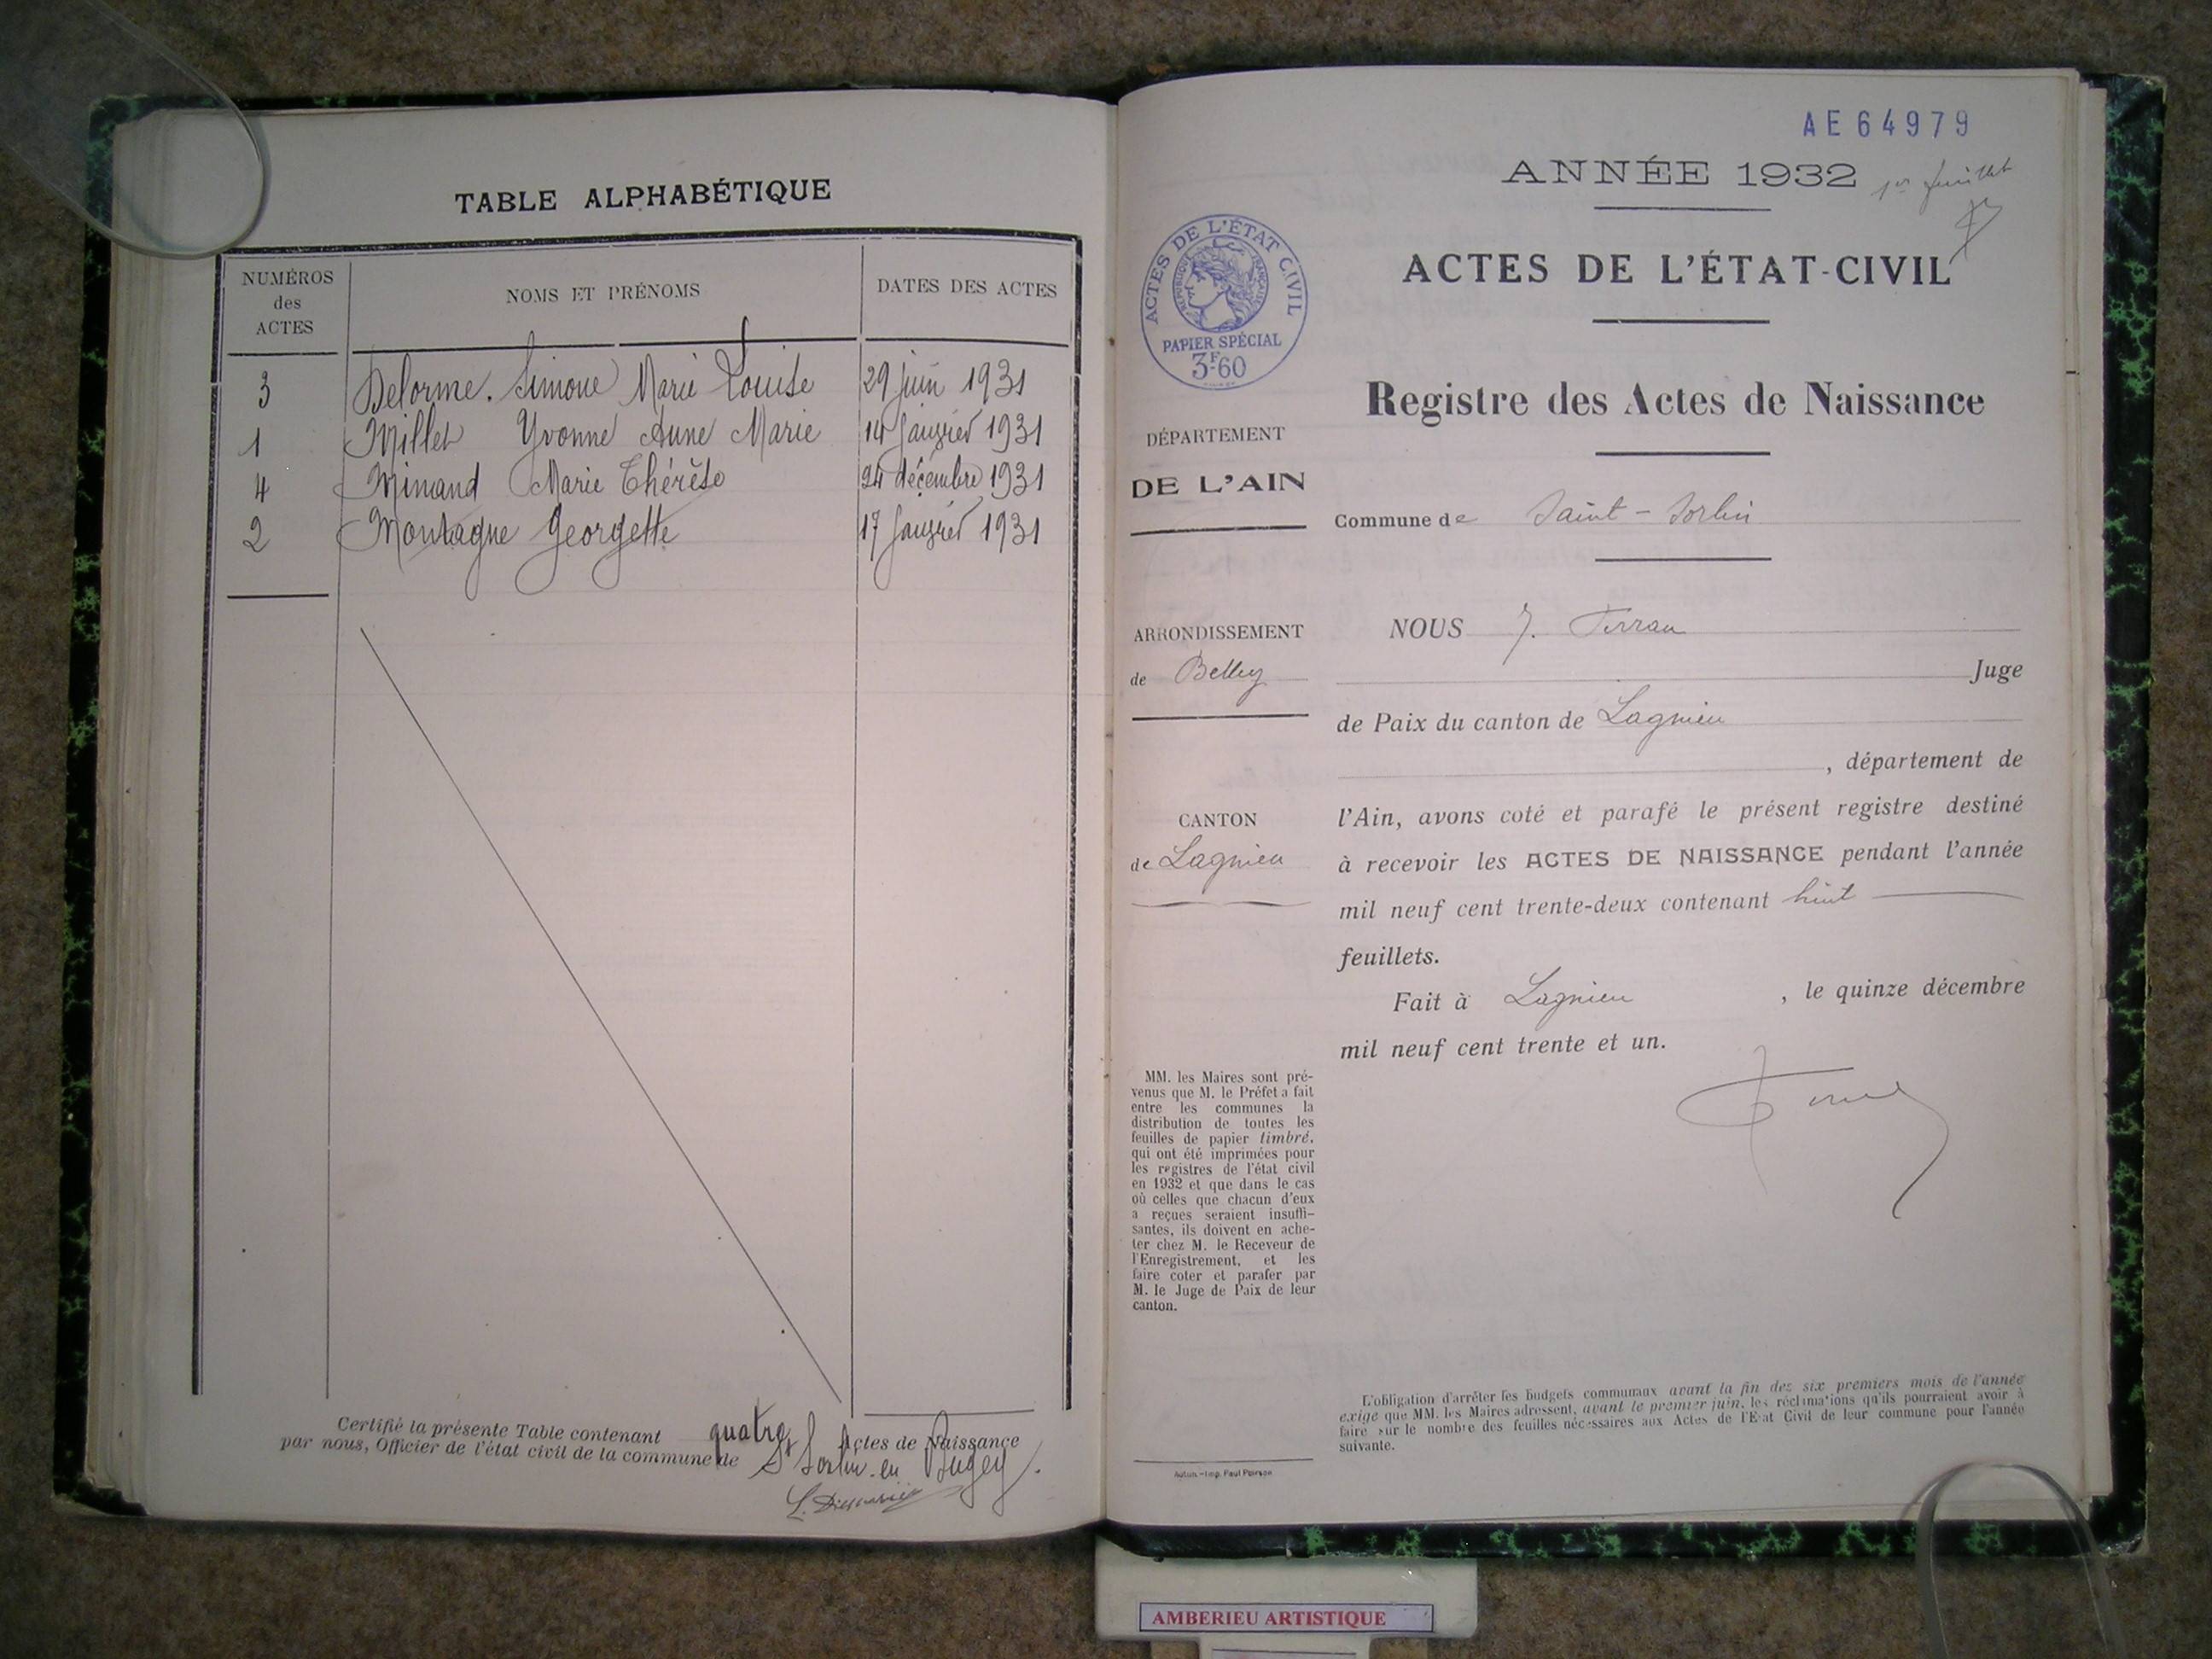 TABLE ALPHABÉTIQUE
NUMÉROS
des
ACTES
NOMS ET PRÉNOMS
DATES DES ACTES
3 Delorme. Simone Marie Louise 29 juin 1931
1 Millet Yvonne Anne Marie 14 janvier 1931
4 Minand Marie Thérèse 24 décembre 1931
2 Montagne Georgette 17 janvier 1931
Certifié la présente Table contenant quatre Actes de Naissance
par nous, Officier de l'état civil de la commune de St Sorlin-en Bugey.
AE64979
ANNÉE 1932
1er feuillet
ACTES DE L'ÉTAT-CIVIL
ACTES DE L'ÉTAT CIVIL
RÉPUBLIQUE FRANÇAISE
PAPIER SPÉCIAL
3F60
Registre des Actes de Naissance
DÉPARTEMENT
DE L'AIN
Commune de Saint-Sorlin
ARRONDISSEMENT
de Belley
NOUS J.
Juge
de Paix du canton de Lagnieu
, département de
CANTON
de Lagnieu
l'Ain, avons coté et parafé le présent registre destiné
à recevoir les ACTES DE NAISSANCE pendant l'année
mil neuf cent trente-deux contenant huit
feuillets.
Fait à Lagnieu , le quinze décembre
mil neuf cent trente et un.
MM. les Maires sont pré-
venus que M. le Préfet a fait
entre les communes la
distribution de toutes les
feuilles de papier timbré,
qui ont été imprimées pour
les registres de l'état civil
en 1932 et que dans le cas
où celles que chacun d'eux
a reçues seraient insuffi-
santes, ils doivent en ache-
ter chez M. le Receveur de
l'Enregistrement, et les
faire coter et parafer par
M. le Juge de Paix de leur
canton.
L'obligation d'arrêter les budgets communaux avant la fin des six premiers mois de l'année
exige que MM. les Maires adressent, avant le premier juin, les réclamations qu'ils pourraient avoir à
faire sur le nombre des feuilles nécessaires aux Actes de l'Etat Civil de leur commune pour l'année
suivante.
Autun.-Imp. Paul Poirson
AMBERIEU ARTISTIQUE